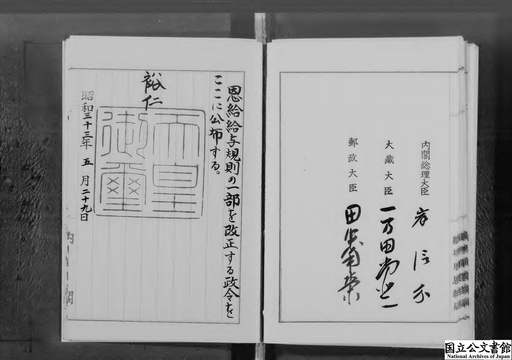 内閣総理大臣 岸信介
大蔵大臣 一万田尚登
郵政大臣 田中角榮
恩給給与規則の一部を改正する政令を
ここに公布する。
裕仁
天皇
御璽
昭和三十三年 五月二十九日
内閣
国立公文書館
National Archives of Japan